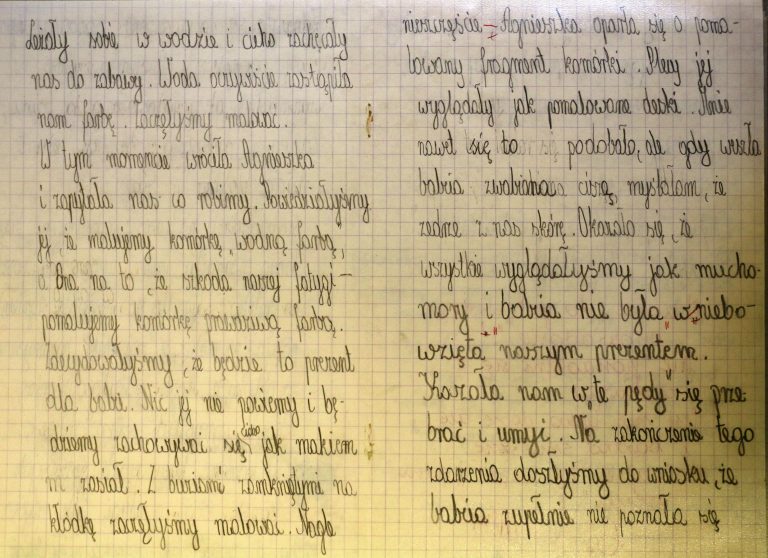 Leżały sobie w wodzie i cicho zachęcały
nas do zabawy. Woda oczywiście zastąpiła
nam farbę. Zaczęłyśmy malować.
W tym momencie wróciła Agnieszka
i zapytała nas co robimy. Powiedziałyśmy
jej, że malujemy komórkę „wodną farbą",
a Ona na to, że szkoda naszej fatygi -
pomalujemy komórkę prawdziwą farbą.
Zdecydowałyśmy, że będzie to prezent
dla babci. Nic jej nie powiemy i bę-
dziemy zachowywać się cicho jak makiem
zasiał. Z buziami zamkniętymi na
kłódkę zaczęłyśmy malować. Nagle
nieszczęście - Agnieszka oparła się o poma-
lowany fragment komórki. Plecy jej
wyglądały jak pomalowane deski. Mnie
nawet się to podobało, ale gdy wyszła
babcia zwabiona ciszą, myślałam, że
zedrze z nas skórę. Okazało się, że
wszystkie wyglądałyśmy jak mucho-
mory i babcia nie była „wniebo-
wzięta" naszym prezentem.
Kazała nam w „te pędy" się prze
brać i umyć. Na zakończenie tego
zdarzenia doszłyśmy do wniosku, że
babcia zupełnie nie poznała się